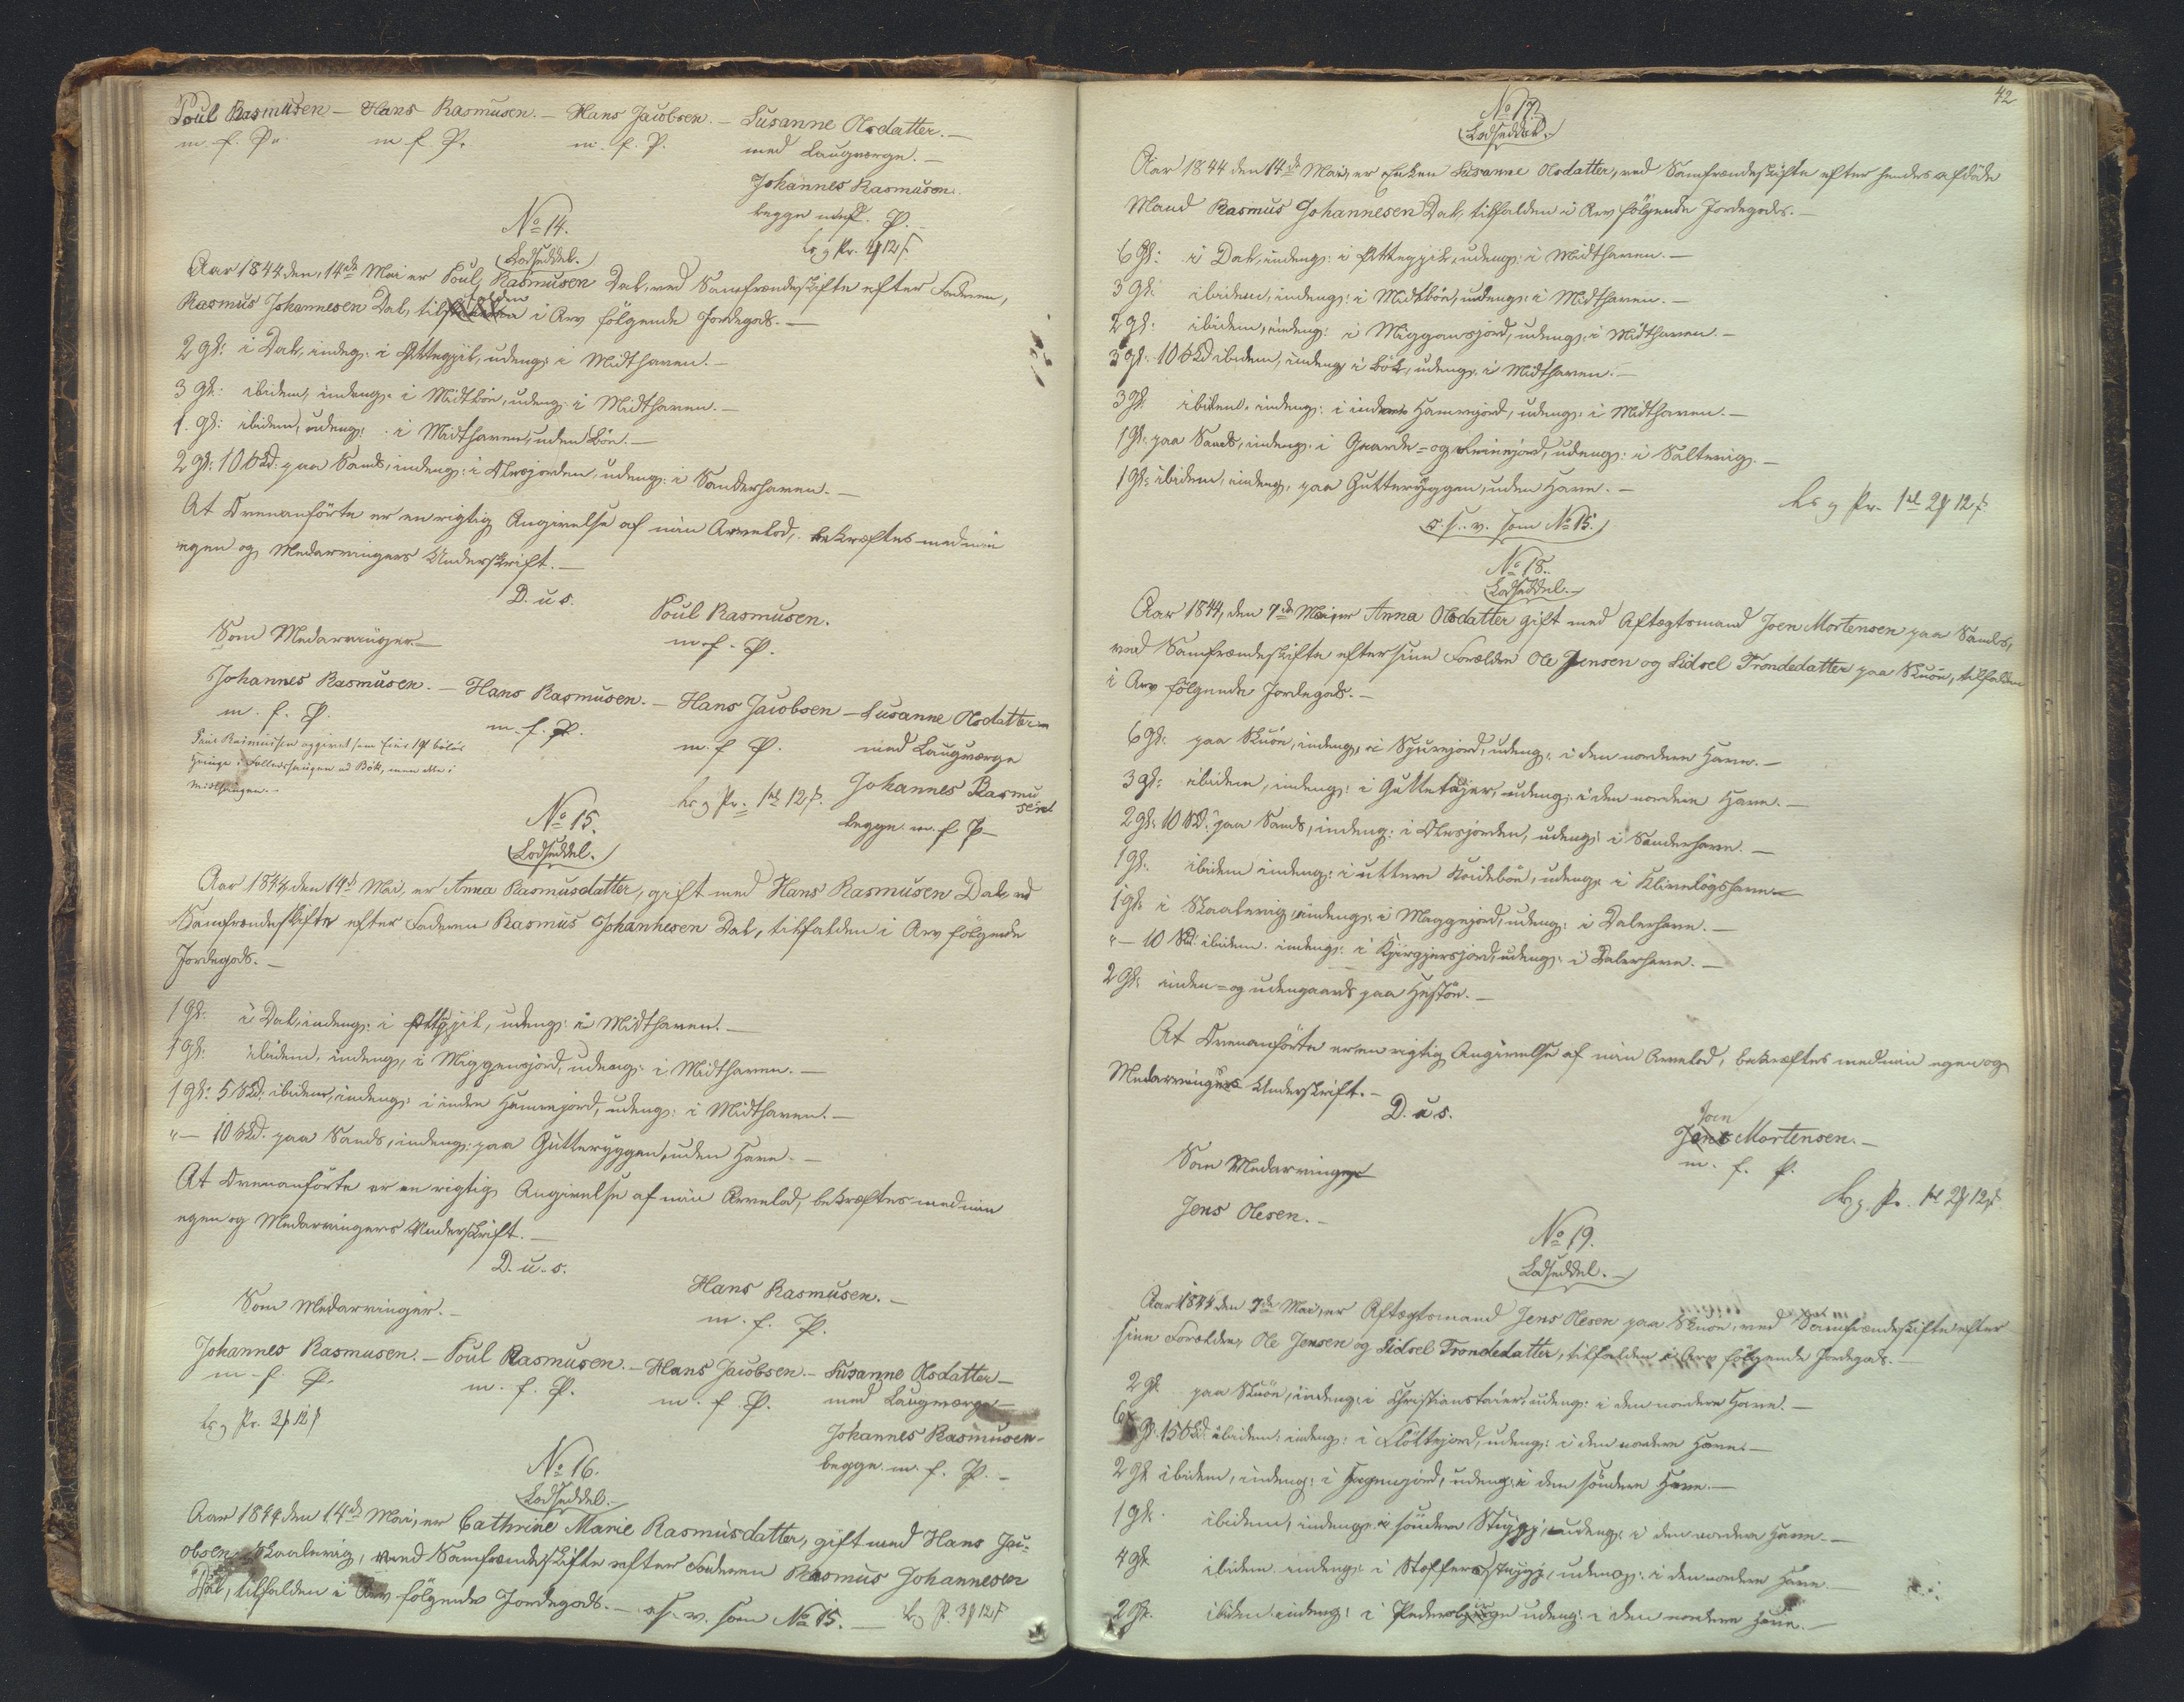 Poul Rasmusen — Hans Rasmusen. — Hans Jacobsen. — Susanne Olsdatter. —
m. f. P. m f. P. m. f. P. med Laugværge. —
Johannes Rasmusen.
begge m. f. P.
No 14.
Lodseddel.
Aar 1844 den 14de Mai er Poul Rasmusen Dal, ved Samfrændeskifte efter Faderen,
Rasmus Johannesen Dal, tilfalden i Arv følgende Jordegods. —
2 Gl: i Dal, indeng: i Attegjil, udeng: i Midthaven. —
3 Gl: ibidem, indeng: i Midtbön, udeng: i Midthaven. —
1. Gl: ibidem, udeng: i Midthaven, uden Bön. —
2 Gl: 10 Skd: paa Sands, indeng: i Olesjorden, udeng: i Sanderhaven. —
At Ovenanførte er en rigtig Angivelse af min Arvelod, bekræftes med min
egen og Medarvingers Underskrift. —
D. u. s.
Poul Rasmusen.
m. f. P.
Som Medarvinger. —
Johannes Rasmusen. — Hans Rasmusen. — Hans Jacobsen — Susanne Olsdatter —
m. f. P. m. f. P. m. f P. med Laugværge
Johannes Rasmu
sen
begge m. f P —
No 15.
Lodseddel.
Aar 1844 den 14de Mai, er Anna Rasmusdatter, gift med Hans Rasmusen Dal, ved
Samfrændeskifte efter Faderen Rasmus Johannesen Dal, tilfalden i Arv følgende
Jordegods. —
1 Gl: i Dal, indeng: i Attegjil, udeng: i Midthaven. —
1 Gl: ibidem, indeng: i Miggensjörd, udeng: i Midthaven. —
1 Gl: 5 Skd: ibidem, indeng: i inden Hamrejord, udeng: i Midthaven. —
" — 10 Skd. paa Sands, indeng: paa Gutteryggen, uden Have. —
At Ovenanførte er en rigtig Angivelse af min Arvelod, bekræftes med min
egen og Medarvingers Underskrift. —
D. u. s.
Hans Rasmusen. —
m. f. P.
Som Medarvinger. —
Johannes Rasmusen. — Poul Rasmusen. — Hans Jacobsen. — Susanne Olsdatter —
m. f. P. m. f. P. m. f. P. med Laugværge —
Johannes Rasmusen —
begge m. f. P. —
No 16.
Lodseddel.
Aar 1844 den 14de Mai, er Cathrine Marie Rasmusdatter, gift med Hans Jac-
obsen Skaalevig, ved Samfrændeskifte efter Faderen Rasmus Johannesen
Dal, tilfalden i Arv følgende Jordegods. — o. s. v. som No 15. —
42
No 17.
Lodseddel.
Aar 1844 den 14de Mai, er Enken Susanne Olsdatter, ved Samfrændeskifte efter hendes afdøde
Mand Rasmus Johannesen Dal, tilfalden i Arv følgende Jordegods. —
6 Gl: i Dal, indeng: i Attegjil, udeng: i Midthaven. —
3 Gl: ibidem, indeng: i Midtbön, udeng: i Midthaven. —
2 Gl: ibidem, indeng: i Miggansjord, udeng: i Midthaven. —
3 Gl: 10 Skd ibidem, indeng: i Bök, udeng: i Midthaven. —
3 Gl ibidem, indeng: i inden Hamrejord, udeng: i Midthaven. —
1 Gl: paa Sands, indeng: i Gaarde- og Leinejord, udeng: i Saltevig. —
1 Gl: ibidem, indeng: paa Gutteryggen, uden Have. —
o. s. v. som No 15.
No 18.
Lodseddel. —
Aar 1844, den 7de Mai er Anna Olsdatter gift med Aftægtsmand Joen Mortensen paa Sands,
ved Samfrændeskifte efter sine Forældre Ole Jensen og Sidsel Trondedatter paa Skuön, tilfalden
i Arv følgende Jordegods. —
6 Gl: paa Skuön, indeng: i Spurejord, udeng: i den nordere Have. —
3 Gl: ibidem, indeng: i Gulletøjer, udeng: i den nordere Have. —
2 Gl: 10 Skd: paa Sands, indeng: i Olesjorden, udeng: i Sanderhave. —
1 Gl. ibidem indeng: i uttere Kvidebön, udeng: i Klivelögshave —
1 Gl: i Skaalevig, indeng: i Maggejord, udeng: i Dalerhave. —
" — 10 Skd: ibidem indeng: i Kjirgjersjord, udeng: i Dalerhave. —
2 Gl: inden- og udengaards paa Hestön. —
At Ovenanførte er en rigtig Angivelse af min Arvelod, bekræftes med min egen og
Medarvingers Underskrift. —
D. u. s.
Joen
Mortensen. —
m. f. P.
Som Medarvinger
Jens Olesen. —
No 19.
Lodseddel. —
Aar 1844 den 7de Mai, er Aftægtsmand Jens Olesen paa Skuön, ved Samfrændeskifte efter
sine Forældre, Ole Jensen og Sidsel Trondedatter, tilfalden i Arv følgende Jordegods. —
2 Gl. paa Skuön, indeng: i Christianstøier, udeng: i den nordere Have. —
6 Gl. 15 Skd: ibidem, indeng: i Flöttejord, udeng: i den nordere Have. —
2 Gl ibidem, indeng: i Hagenjord, udeng: i den söndere Have. —
1 Gl. ibidem, indeng: i söndere Stuggj, udeng: i den nordere Have. —
4 Gl. ibidem indeng: i Stoffers Stuggj, udeng: i den nordere Have. —
2 Gl. ibidem indeng: i udeng: i den nordere Have. —